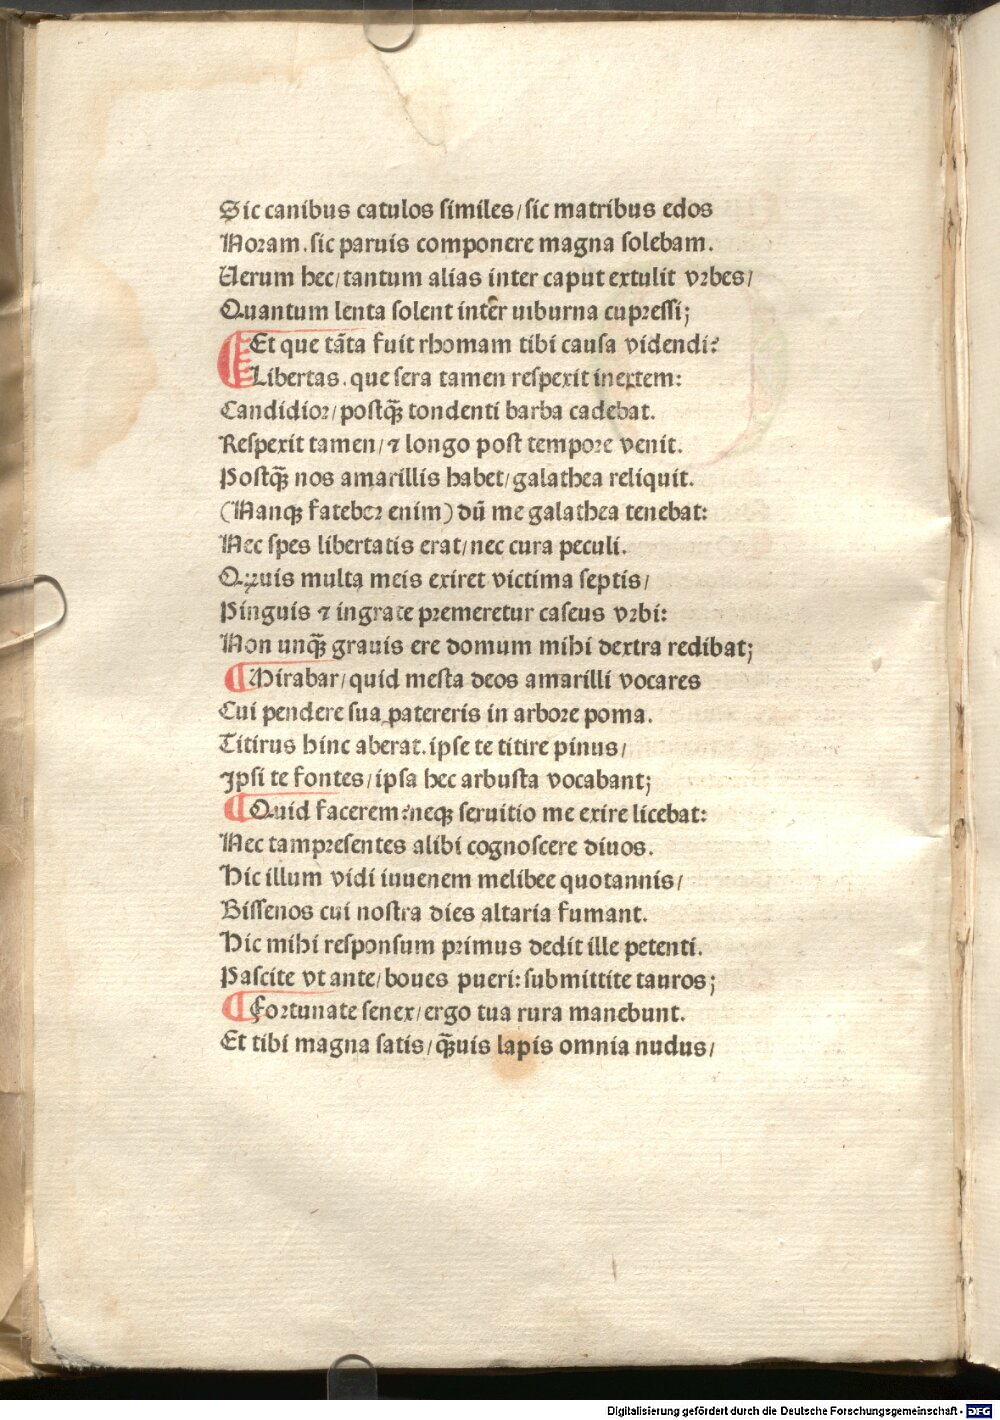 Sic canibus catulos similes/sic matribus edos
Noram.sic paruis componere magna solebam.
Uerum hec/tantum alias inter caput extulit vrbes/
Quantum lenta solent inter uiburna cupressi;
Et que tāta fuit rhomam tibi causa videndi?
Libertas.que sera tamen respexit inextem:
Candidior/postq̄ tondenti barba cadebat.
Respexit tamen/⁊ longo post tempore venit.
Postq̄ nos amarillis habet/galathea reliquit.
(Nanqꝫ fatebor enim) dū me galathea tenebat:
Nec spes libertatis erat/nec cura peculi.
Quis multa meis exiret victima septis/
Pinguis ⁊ ingrate premeretur caseus vrbi:
Non unq̄ grauis ere domum mihi dextra redibat;
Mirabar/quid mesta deos amarilli vocares
Cui pendere sua patereris in arbore poma.
Titirus hinc aberat.ipse te titire pinus/
Ipsi te fontes/ipsa hec arbusta vocabant;
Quid facerem?neqꝫ seruitio me exire licebat:
Nec tampresentes alibi cognoscere diuos.
Hic illum vidi iuuenem melibee quotannis/
Bissenos cui nostra dies altaria fumant.
Hic mihi responsum primus dedit ille petenti.
Pascite vt ante/boues pueri:submittite tauros;
Fortunate senex/ergo tua rura manebunt.
Et tibi magna satis/q̄uis lapis omnia nudus/
Digitalisierung gefördert durch die Deutsche Forschungsgemeinschaft - DFG